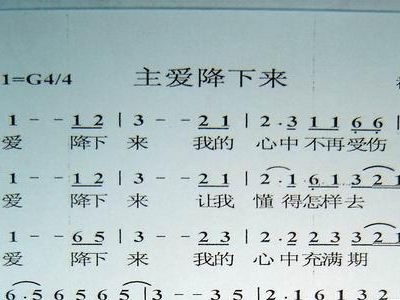 主爱降下来
1=G4/4
1 - - 1 2 | 3 - - 2 1 | 2 · 3 1 1 6 6 |
爱 降下 来 我的 心中 不再受伤
1 - - 1 2 | 3 - - 2 1 | 2 · 1 6 1 3 2 1
爱 降下 来 让我 懂得怎样去
1 - - 6 5 | 3 - - 2 3 | 2 · 2 2 3 3 2 1
爱 降下 来 我的 心中充满期
6 · 5 6 5 6 5 | 3 - - 3 5 | 2 · 1 6 1 3 2